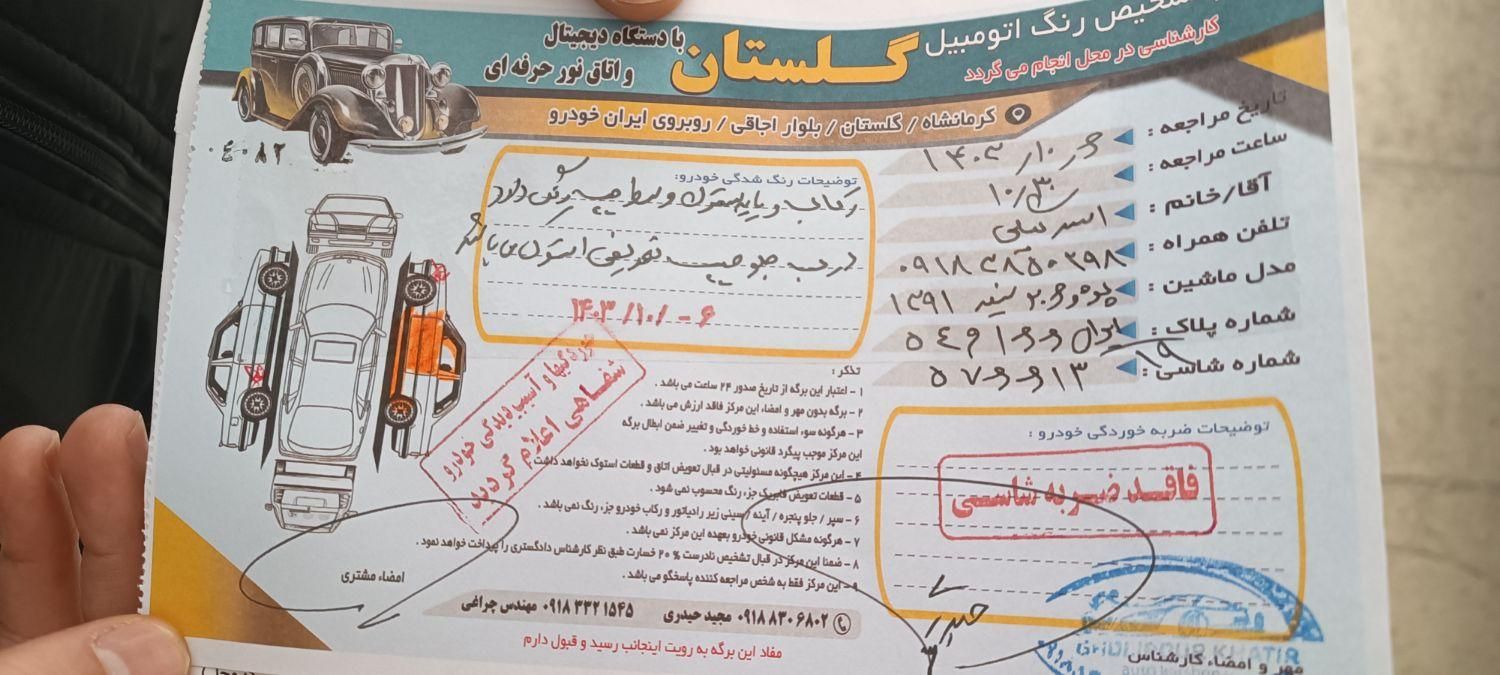 تشخیص رنگ اتومبیل گلستان با دستگاه دیجیتال
و اتاق نور حرفه ای
کارشناسی در محل انجام می گردد
کرمانشاه / گلستان / بلوار اجاقی / روبروی ایران خودرو
۰۴۰۸۲
تاریخ مراجعه :
ساعت مراجعه : ۱۰/۳۰
آقا/خانم :
تلفن همراه :
مدل ماشین : ۱۳۹۱
شماره پلاک : ایران ۱۹
شماره شاسی :
توضیحات رنگ شدگی خودرو:
رکاب و پایه استوک و وسط چپ رنگ دارد
درب جلو چپ تعویض استوک می باشد
۱۴۰۳/۱۰/۰۶
خوردگیها و آسیب دیدگی خودرو
شفاهی اعلام گردید
تذکر :
۱ - اعتبار این برگه از تاریخ صدور ۲۴ ساعت می باشد .
۲ - برگه بدون مهر و امضاء این مرکز فاقد ارزش می باشد .
۳ - هرگونه سوء استفاده و خط خوردگی و تغییر ضمن ابطال برگه
این مرکز موجب پیگرد قانونی خواهد بود .
۴ - این مرکز هیچگونه مسئولیتی در قبال تعویض اتاق و قطعات استوک نخواهد داشت .
۵ - قطعات تعویض فابریک جزء رنگ محسوب نمی شود .
۶ - سپر / جلو پنجره / آینه / سینی زیر رادیاتور و رکاب خودرو جزء رنگ نمی باشد .
۷ - هرگونه مشکل قانونی خودرو بعهده این مرکز نمی باشد .
۸ - ضمنا این مرکز در قبال تشخیص نادرست ۲۰ % خسارت طبق نظر کارشناس دادگستری را پرداخت خواهد نمود .
۹ - این مرکز فقط به شخص مراجعه کننده پاسخگو می باشد .
توضیحات ضربه خوردگی خودرو :
فاقد ضربه شاسی
امضاء مشتری
۰۹۱۸ ۸۳۰ ۶۸۰۲ مجید حیدری ۰۹۱۸ ۳۳۲ ۱۵۴۵ مهندس چراغی
مفاد این برگه به رویت اینجانب رسید و قبول دارم
مهر و امضاء کارشناس